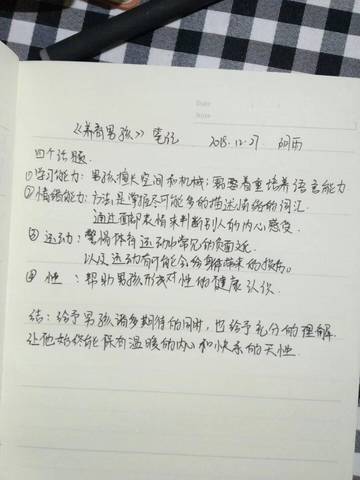 Date
Note
《养育男孩》笔记 2018.12.27 阴雨
四个话题.
①学习能力: 男孩擅长空间和机械; 要着重培养语言能力
②情绪能力: 方法是掌握尽可能多的描述情绪的词汇.
通过面部表情来判断别人的内心感受.
③运动: 警惕体育运动中常见的负面
以及运动有可能会给身体带来的损伤。
④性: 帮助男孩形成对性的健康认识.
结: 给予男孩诸多期待的同时, 也给予充分的理解.
让他始终能保有温暖的内心和快乐的天性.